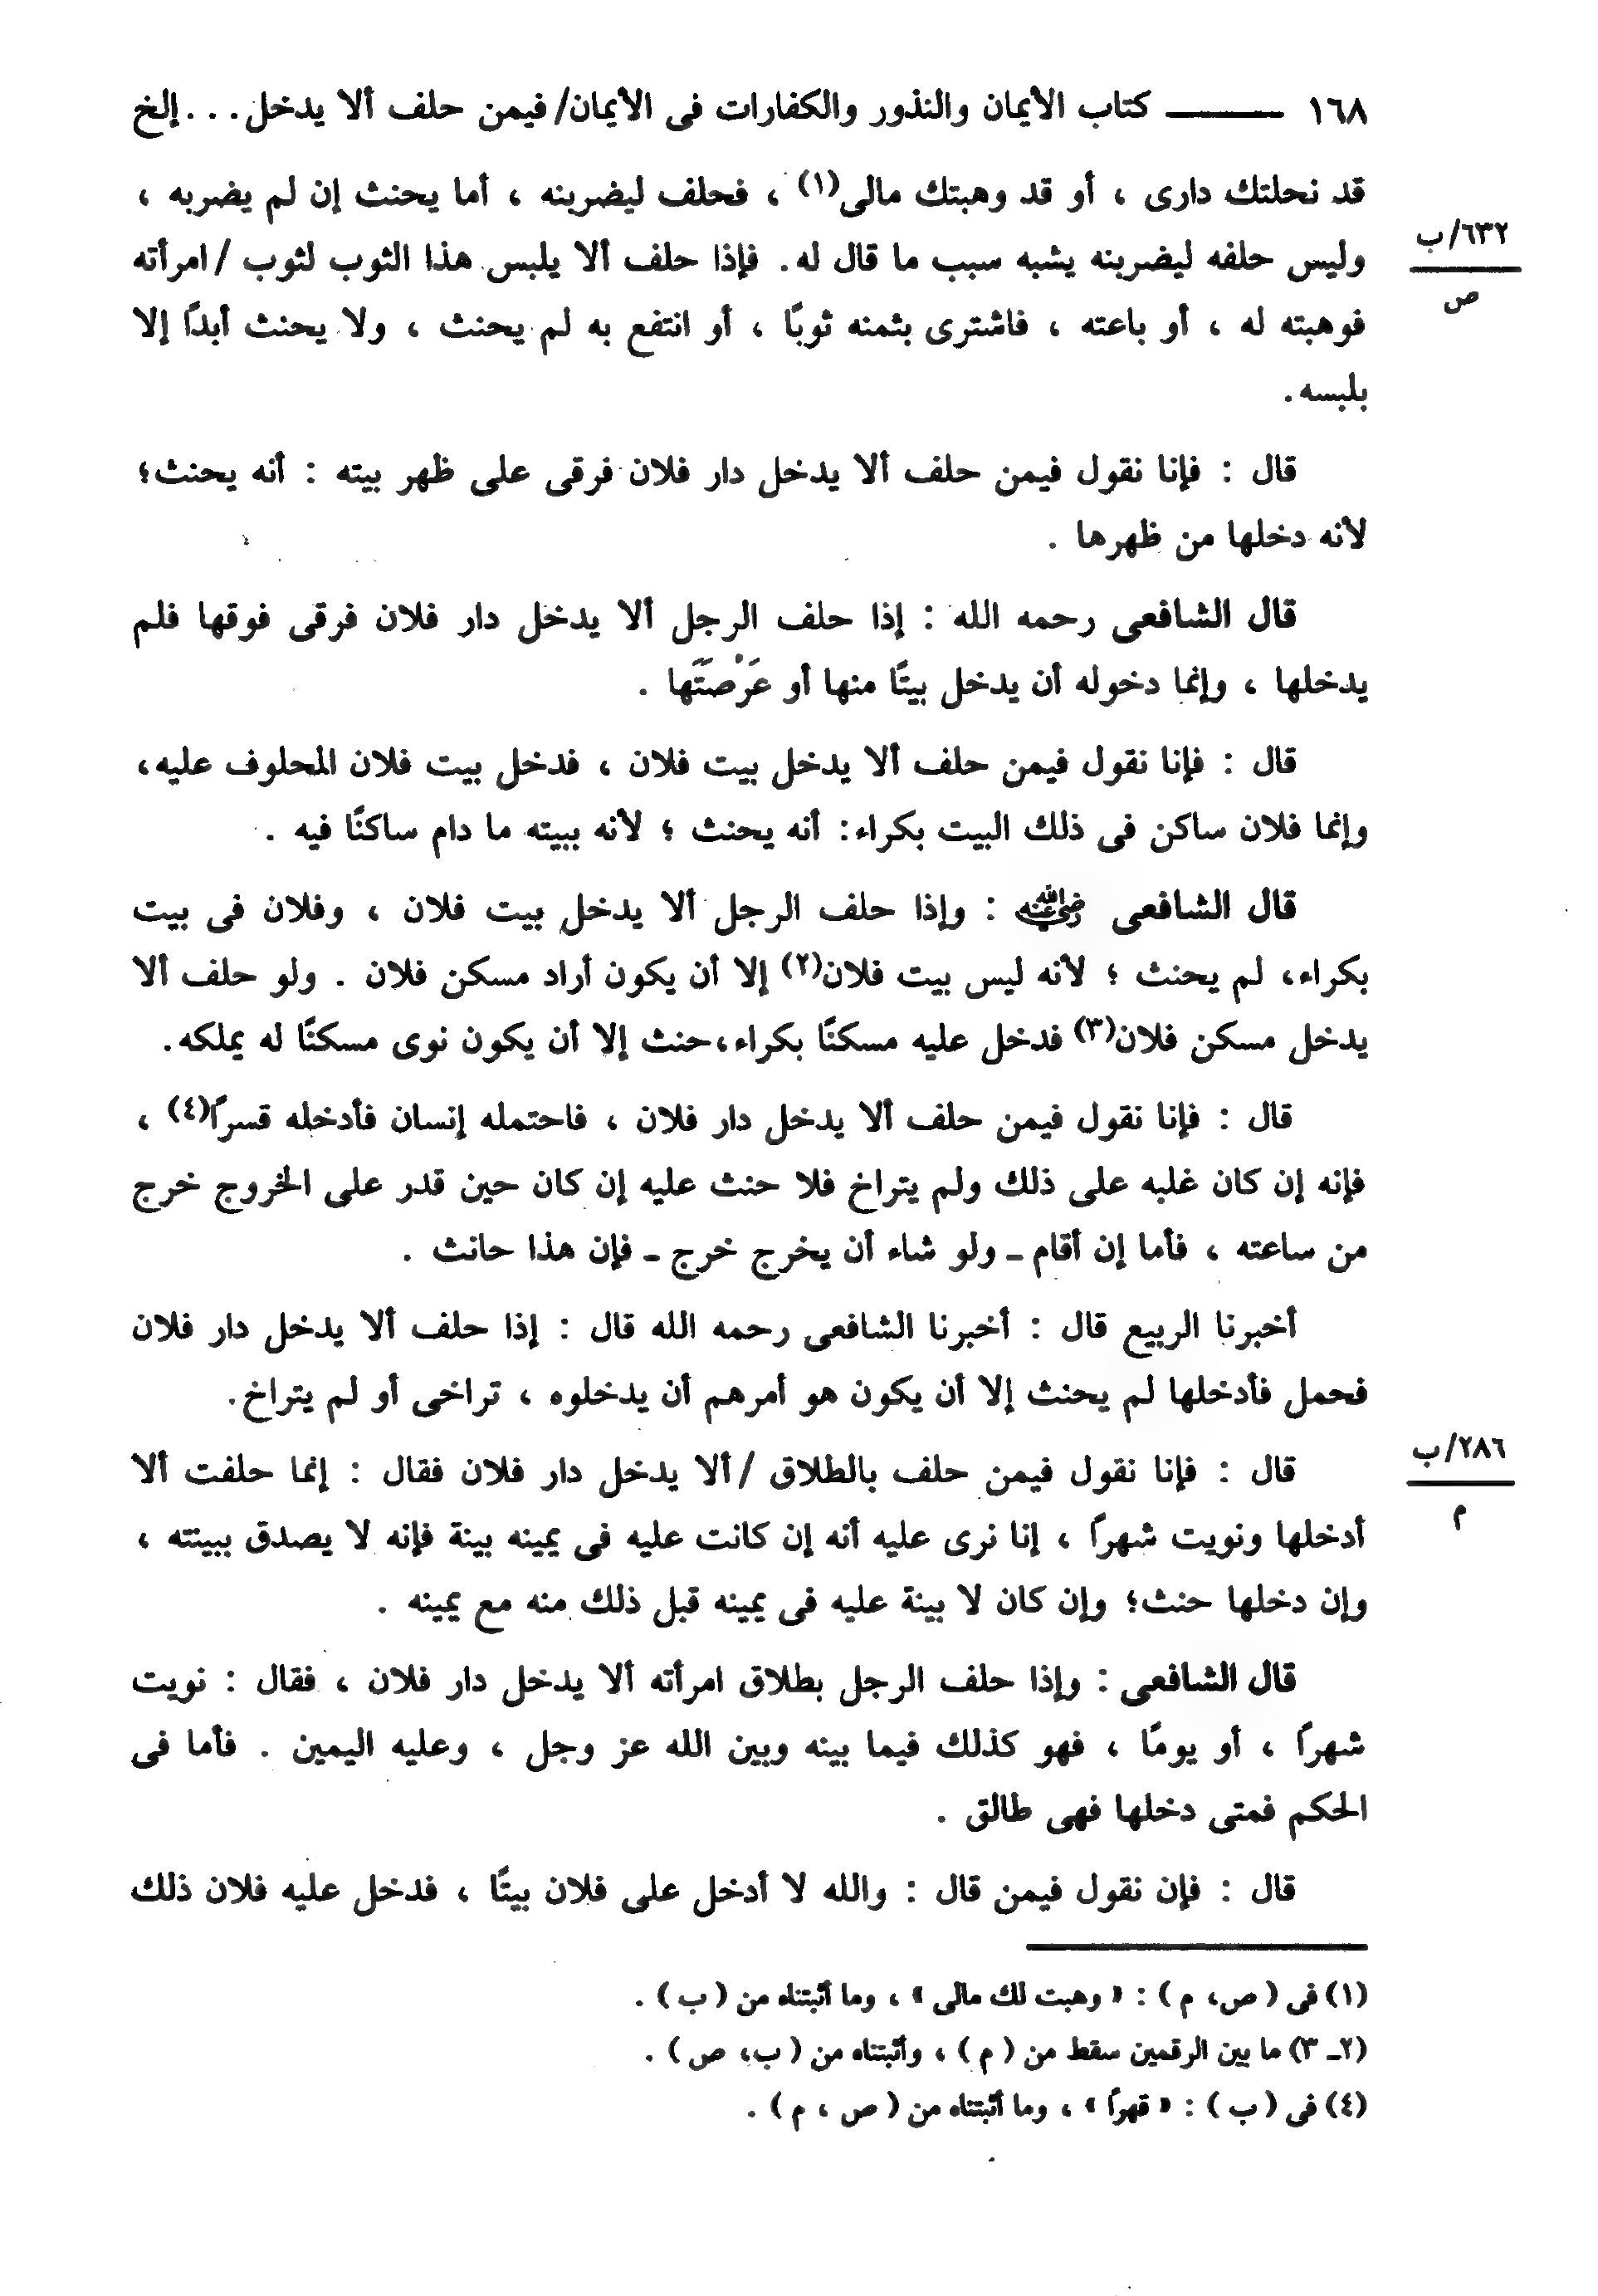 ١٦٨ ــــــ كتاب الأيمان والنذور والكفارات فى الأيمان/ فيمن حلف ألا يدخل . . . إلخ
قد نحلتك دارى ، أو قد وهبتك مالى(١) ، فحلف ليضربنه ، أما يحنث إن لم يضربه ،
وليس حلفه ليضربنه يشبه سبب ما قال له. فإذا حلف ألا يلبس هذا الثوب لثوب / امرأته
٦٣٢/ب
ص
فوهبته له ، أو باعته ، فاشترى بثمنه ثوبًا ، أو انتفع به لم يحنث ، ولا يحنث أبدًا إلا
بلبسه.
قال : فإنا نقول فيمن حلف ألا يدخل دار فلان فرقى على ظهر بيته : أنه يحنث؛
لأنه دخلها من ظهرها .
قال الشافعى رحمه الله : إذا حلف الرجل ألا يدخل دار فلان فرقى فوقها فلم
يدخلها ، وإنما دخوله أن يدخل بيتًا منها أو عَرْصَتَها .
قال : فإنا نقول فيمن حلف ألا يدخل بيت فلان ، فدخل بيت فلان المحلوف عليه،
وإنما فلان ساكن فى ذلك البيت بكراء: أنه يحنث ؛ لأنه ببيته ما دام ساكنًا فيه .
قال الشافعى رضي الله عنه : وإذا حلف الرجل ألا يدخل بيت فلان ، وفلان فى بيت
بكراء، لم يحنث ؛ لأنه ليس بيت فلان(٢) إلا أن يكون أراد مسكن فلان . ولو حلف ألا
يدخل مسكن فلان(٣) فدخل عليه مسكنًا بكراء،حنث إلا أن يكون نوى مسكنًا له يملكه.
قال : فإنا نقول فيمن حلف ألا يدخل دار فلان ، فاحتمله إنسان فأدخله قسرًا(٤) ،
فإنه إن كان غلبه على ذلك ولم يتراخ فلا حنث عليه إن كان حين قدر على الخروج خرج
من ساعته ، فأما إن أقام ـ ولو شاء أن يخرج خرج ـ فإن هذا حانث .
أخبرنا الربيع قال : أخبرنا الشافعى رحمه الله قال : إذا حلف ألا يدخل دار فلان
فحمل فأدخلها لم يحنث إلا أن يكون هو أمرهم أن يدخلوه ، تراخى أو لم يتراخ.
قال : فإنا نقول فيمن حلف بالطلاق / ألا يدخل دار فلان فقال : إنما حلفت ألا
٢٨٦/ب
م
أدخلها ونويت شهرًا ، إنا نرى عليه أنه إن كانت عليه فى يمينه بينة فإنه لا يصدق ببينته ،
وإن دخلها حنث؛ وإن كان لا بينة عليه فى يمينه قبل ذلك منه مع يمينه .
قال الشافعى : وإذا حلف الرجل بطلاق امرأته ألا يدخل دار فلان ، فقال : نويت
شهرًا ، أو يومًا ، فهو كذلك فيما بينه وبين الله عز وجل ، وعليه اليمين . فأما فى
الحكم فمتى دخلها فهى طالق .
قال : فإن نقول فيمن قال : والله لا أدخل على فلان بيتًا ، فدخل عليه فلان ذلك
(١) فى ( ص، م ) : « وهبت لك مالى » ، وما أثبتناه من ( ب ) .
(٢ـ ٣) ما بين الرقمين سقط من ( م ) ، وأثبتناه من ( ب، ص ) .
(٤) فى ( ب ) : « قهرًا » ، وما أثبتناه من ( ص ، م ) .